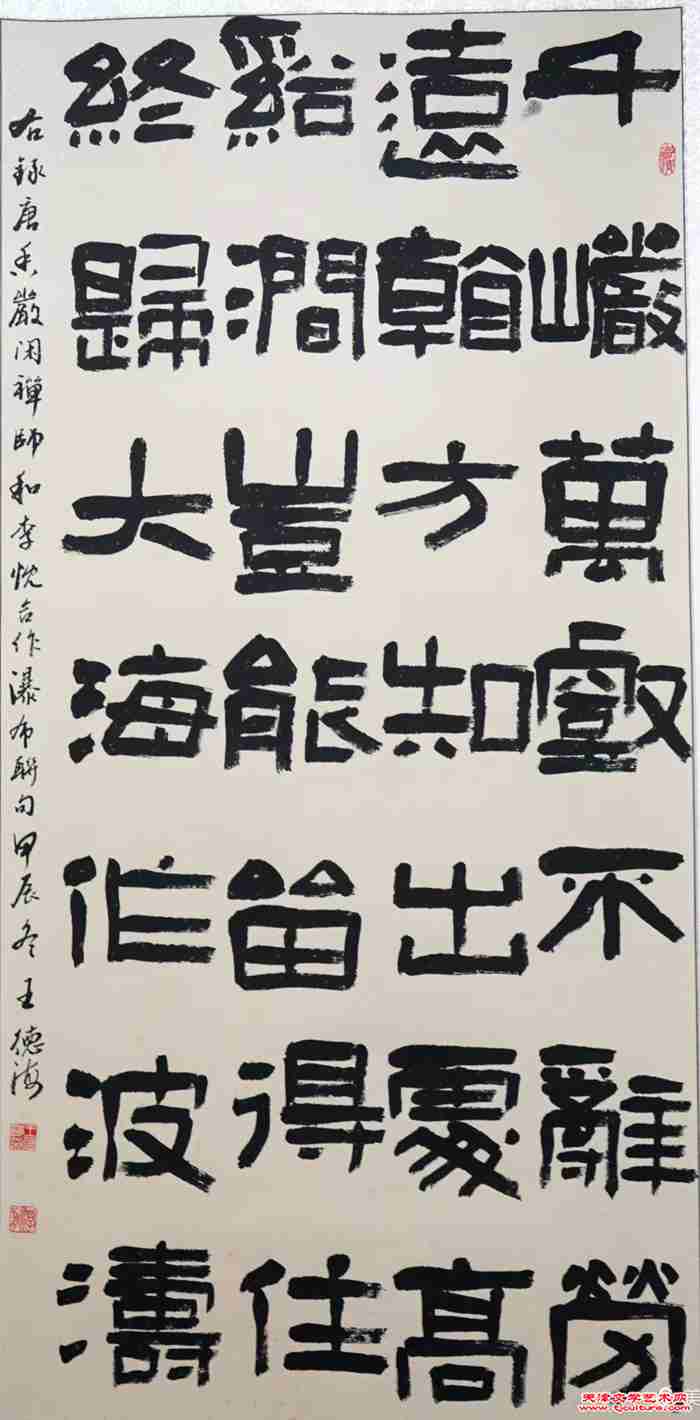 千巖萬壑不辭勞
遠看方知出處高
谿澗豈能留得住
終歸大海作波濤
右録唐香嚴闲禪師和李忱合作瀑布聯句甲辰冬王德海
天津文学艺术网
www.tjculture.com